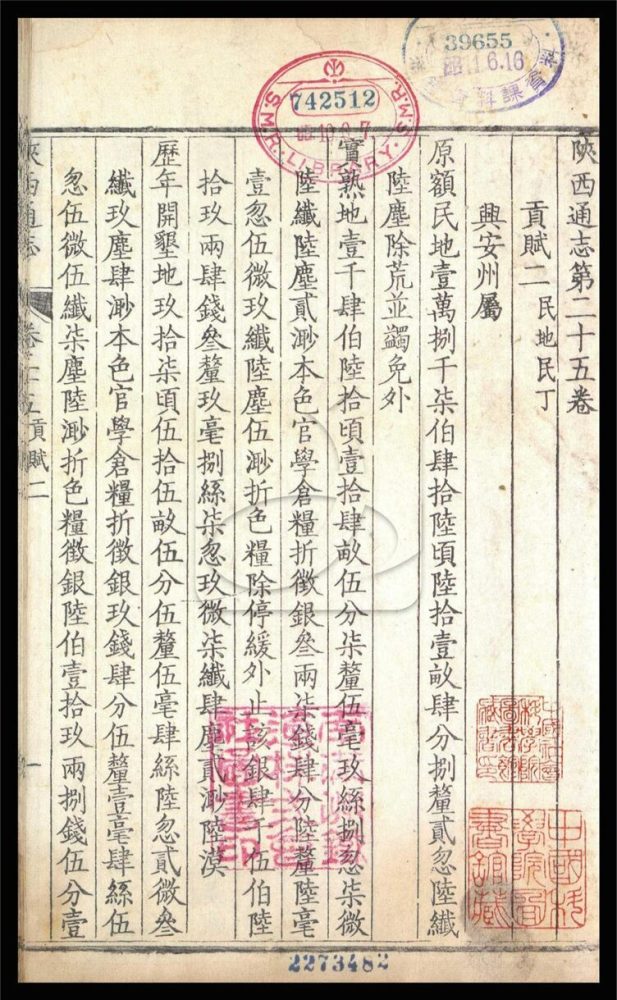 陝西通志第二十五卷
貢賦二 民地民丁
興安州屬
原額民地壹萬捌千柒伯肆拾陸頃陸拾壹畝肆分捌釐貳忽陸纖
陸塵除荒並蠲免外
實熟地壹千肆伯陸拾頃壹拾肆畝伍分柒釐伍毫玖絲捌忽柒微
陸纖陸塵貳渺本色官學倉糧折徵銀叁兩柒錢肆分陸釐陸毫
壹忽伍微玖纖陸塵伍渺折色糧除停緩外止該銀肆千伍伯陸
拾玖兩肆錢叁釐玖毫捌絲柒忽玖微柒纖肆塵貳渺陸漠
歷年開墾地玖拾柒頃伍拾伍畝伍分伍釐伍毫肆絲陸忽貳微叁
纖玖塵肆渺本色官學倉糧折徵銀玖錢肆分伍釐壹毫肆絲伍
忽伍微伍纖柒塵陸渺折色糧徵銀陸伯壹拾玖兩捌錢伍分壹
陝西通志 卷二十五 貢賦二 一
39655
742512
S.M.R. LIBRARY. S.M.R.
中國科學院圖書館藏
2273482